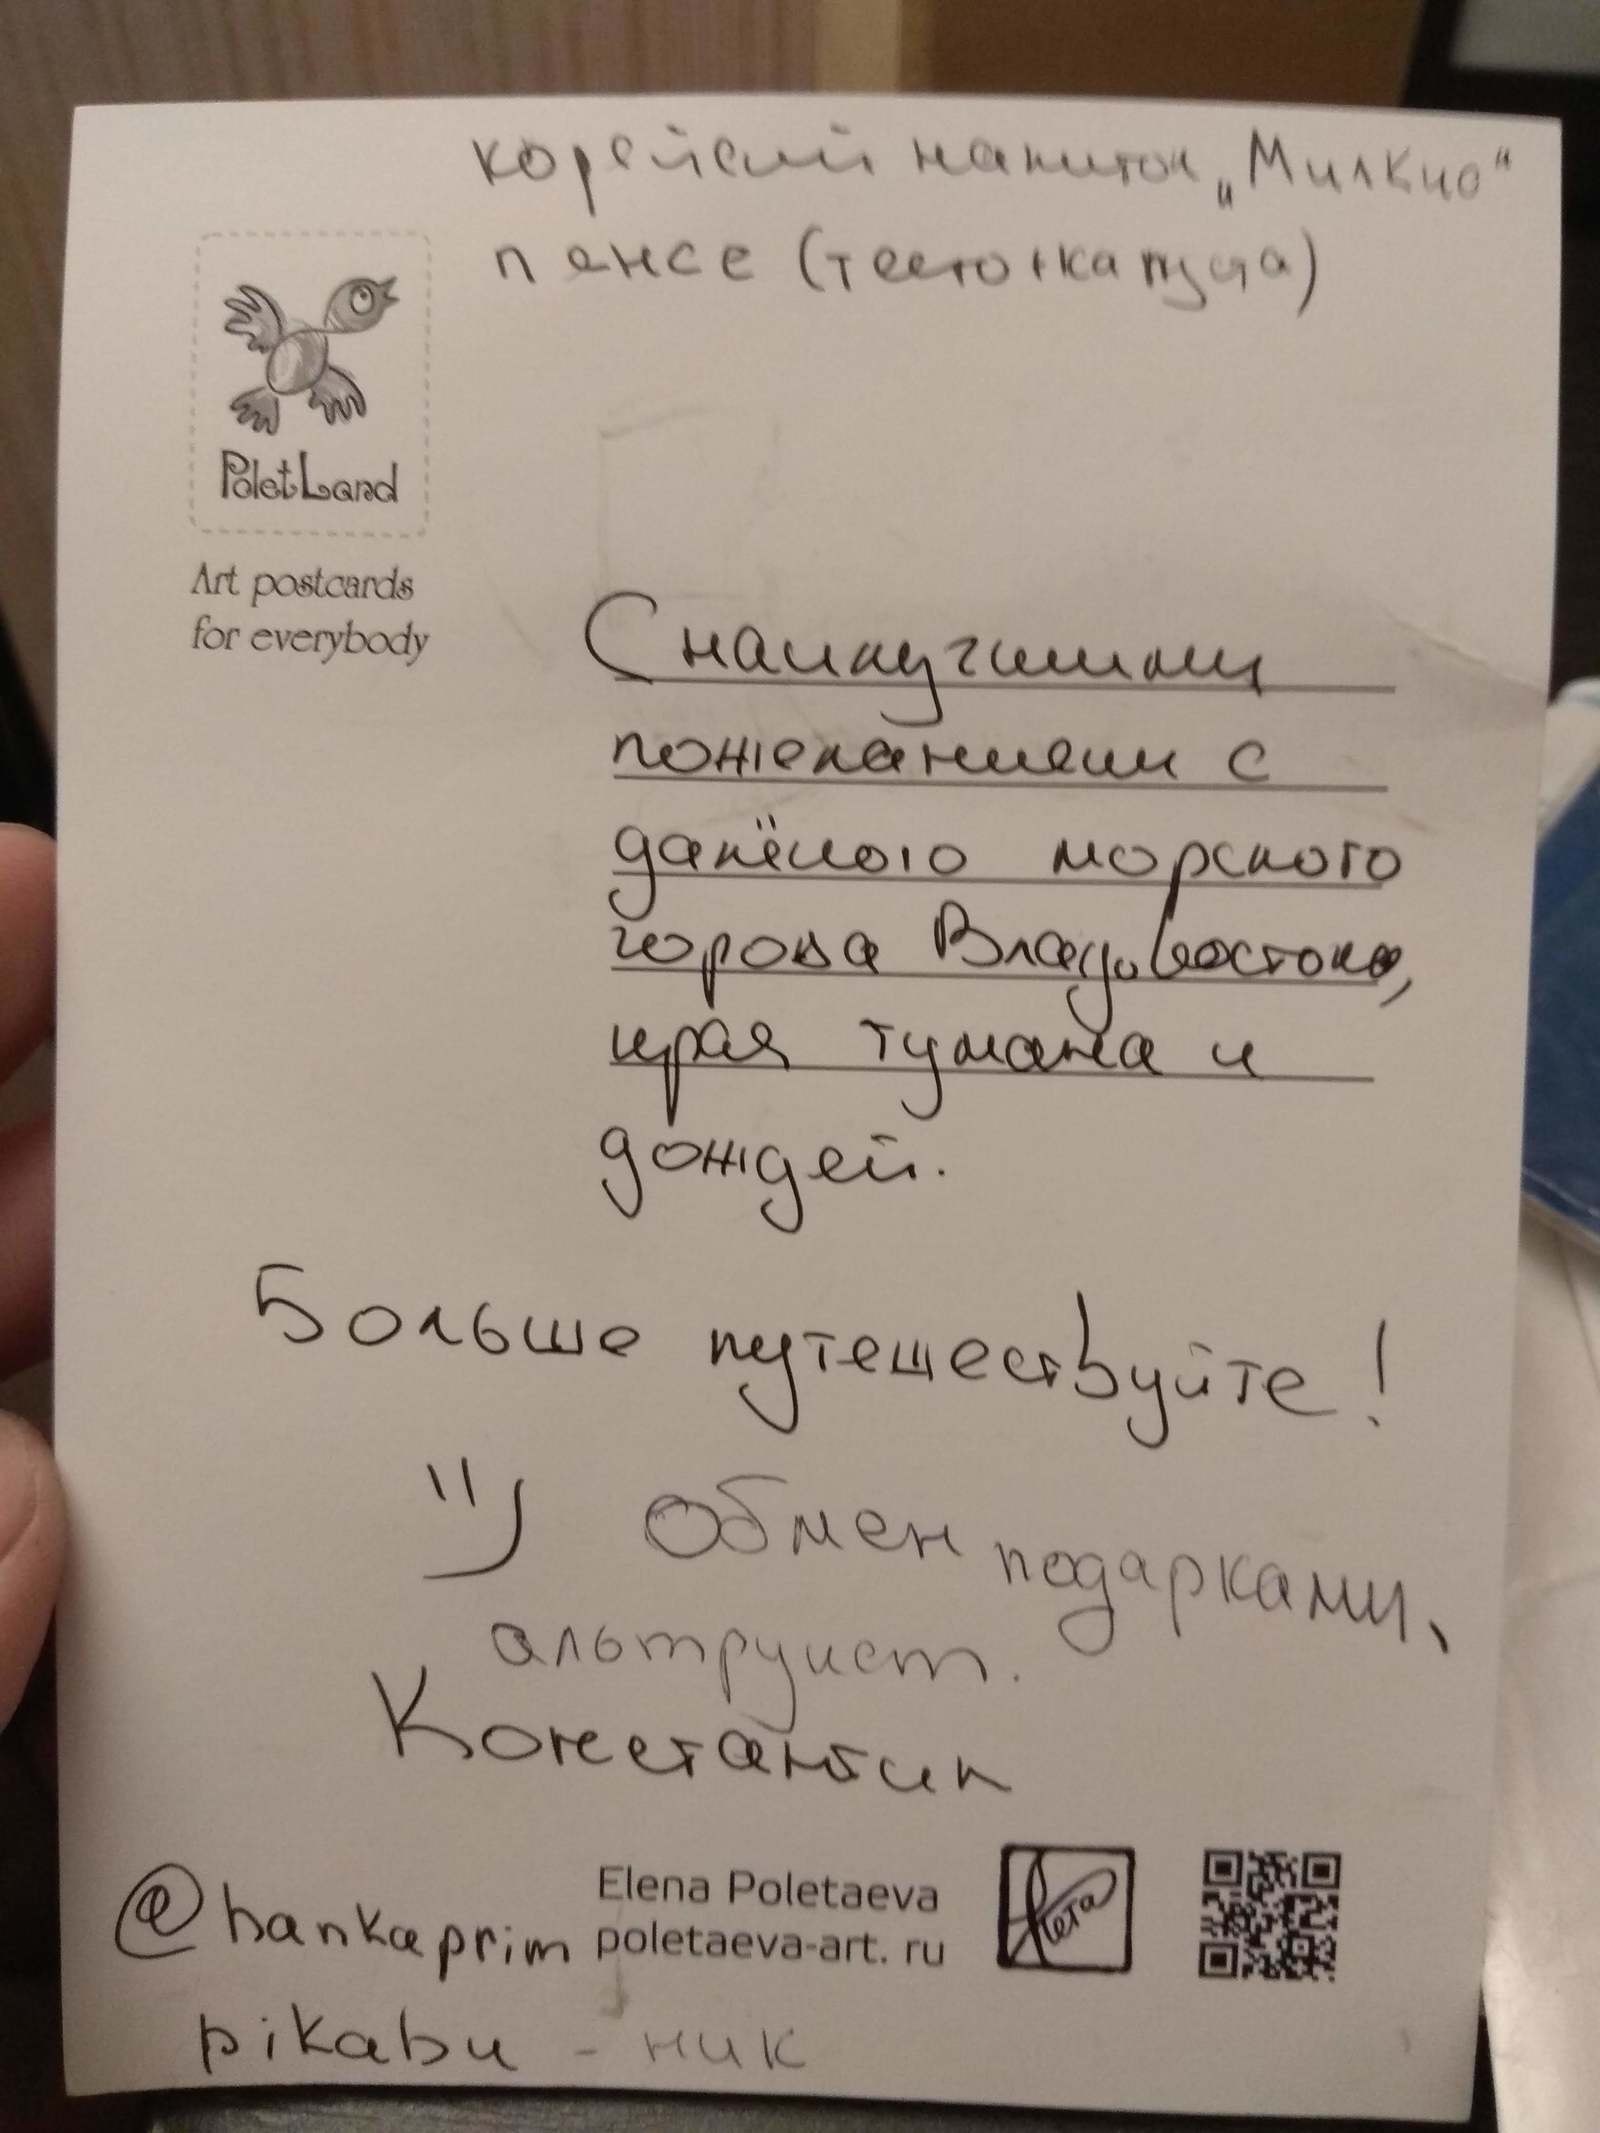 корейский напиток „Милкис"
пянсе (тесто+капуста)
PoletLand
Art postcards
for everybody
С наилучшими
пожеланиями с
далёкого морского
города Владивостока,
края тумана и
дождей.
Больше путешествуйте!
Обмен подарками,
альтруист.
Константин
@hankaprim
Elena Poletaeva
poletaeva-art. ru
Лета
pikabu - ник